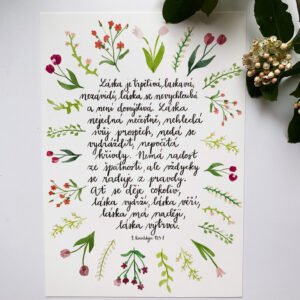 Láska je trpělivá, laskavá,
nezávidí, láska se nevychloubá
a není domýšlivá. Láska
nejedná nečestně, nehledá
svůj prospěch, nedá se
vydráždit, nepočítá
křivdy. Nemá radost
ze špatnosti, ale vždycky
se raduje z pravdy.
Ať se děje cokoliv,
láska vydrží, láska věří,
láska má naději,
láska vytrvá.